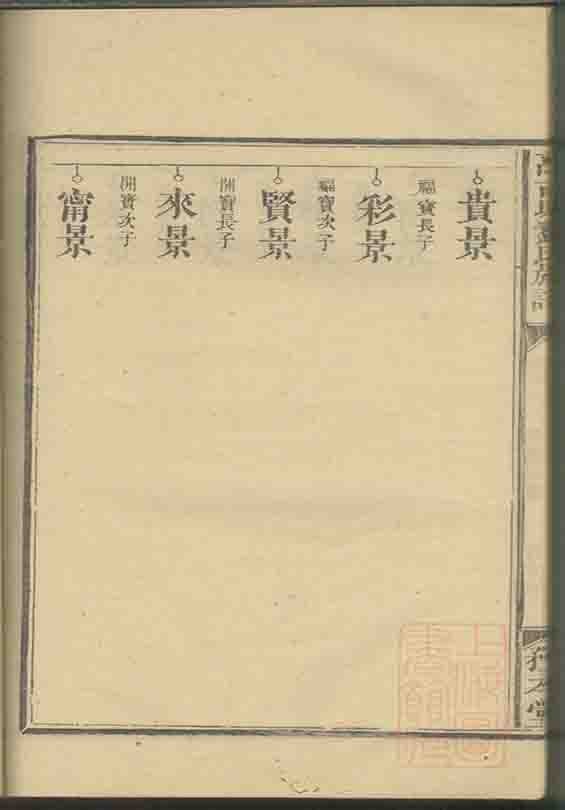 貴景
福寶長子
彩景
福寶次子
賢景
開寶長子
來景
開寶次子
甯景
上海圖
書館藏